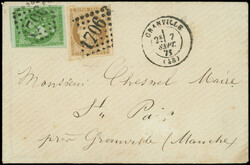 GRANVILLE
7
SEPT.
75
(48)
1706
Monsieur Chesnel Maire
St Pair
près Granville (Manche)